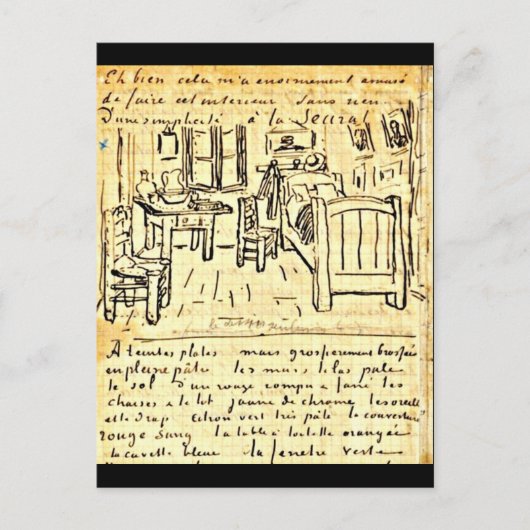 Eh bien cela m'a enormement amusé
de faire cet interieur sans rien
D'une simplicité à la Seurat
A teintes plates mais grossierement brossées
en pleine pâte les murs lilas pale
le sol d'un rouge rompu & fané les
chaises & le lit jaune de chrome les oreillers
et le drap citron vert très pâle la couverture
rouge sang la table à toilette orangée
la cuvette bleue la fenetre verte